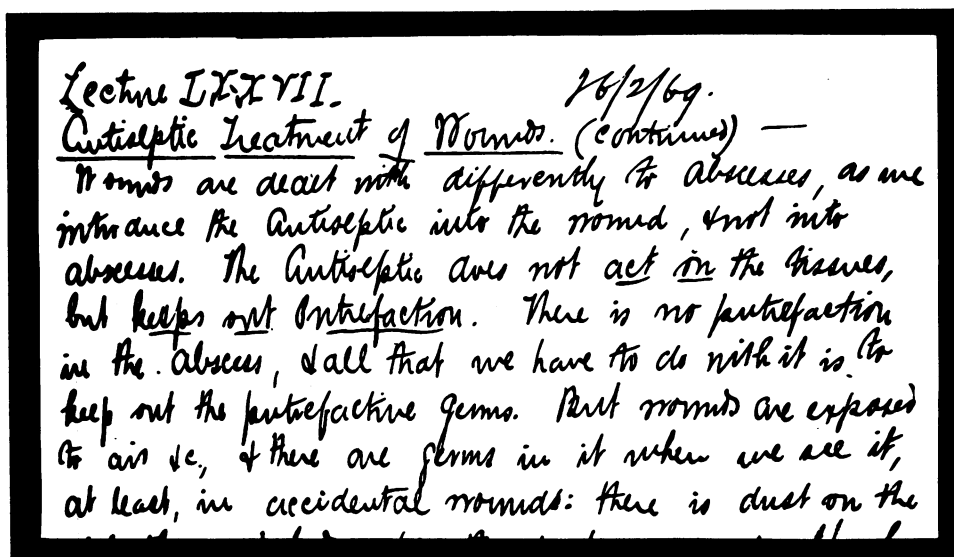 Lecture LXXVII. 26/2/69.
Antiseptic Treatment of Wounds. (continued) —
Wounds are dealt with differently to abscesses, as we
introduce the Antiseptic into the wound, & not into
abscesses. The Antiseptic does not act on the tissues,
but keeps out Putrefaction. There is no putrefaction
in the abscess, & all that we have to do with it is to
keep out the putrefactive germs. But wounds are exposed
to air &c., & there are germs in it when we see it,
at least, in accidental wounds: there is dust on the